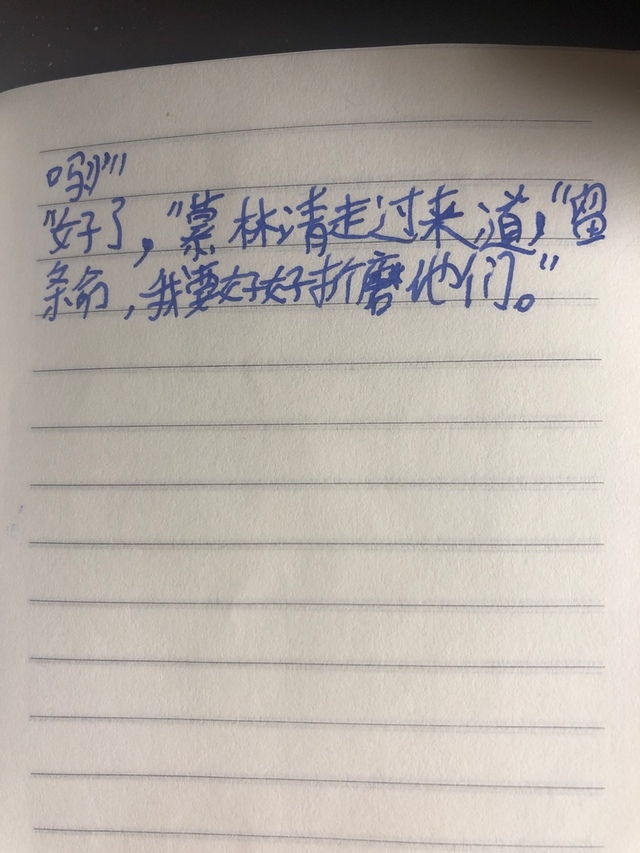 吗?"
"好了,"慕林清走过来道,"留
条命,我要好好折磨他们。"